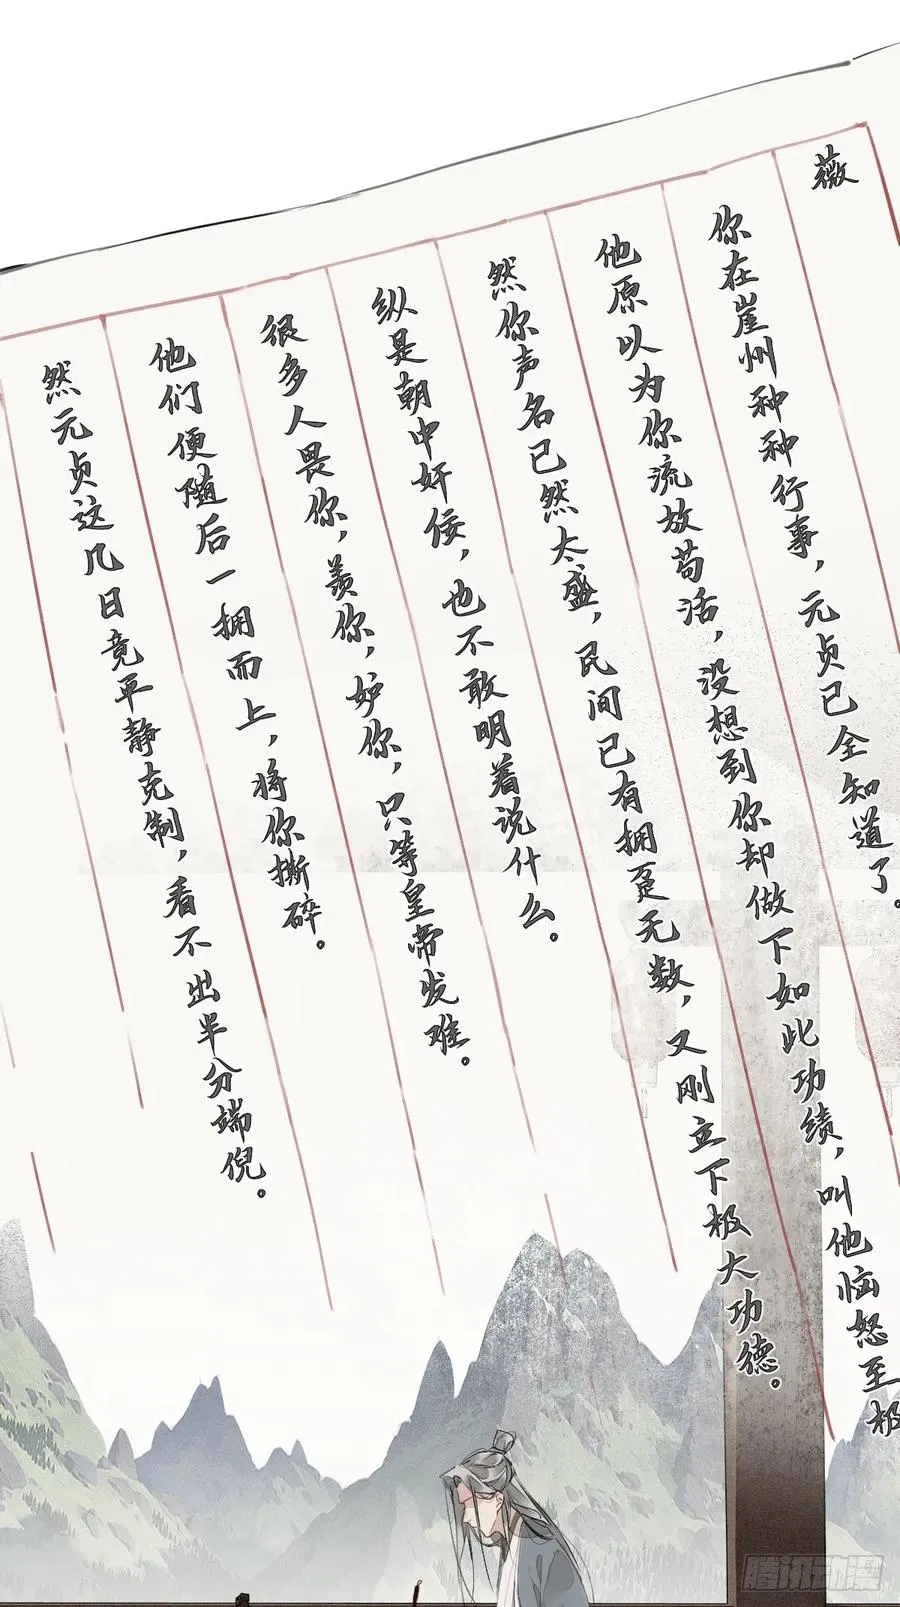 薇
你在崖州种种行事，元贞已全知道了。
他原以为你流放苟活，没想到你却做下如此功绩，叫他恼怒至极
然你声名已然太盛，民间已有拥趸无数，又刚立下极大功德。
纵是朝中奸佞，也不敢明着说什么。
很多人畏你，羡你，妒你，只等皇帝发难。
他们便随后一拥而上，将你撕碎。
然元贞这几日竟平静克制，看不出半分端倪。
腾讯动漫